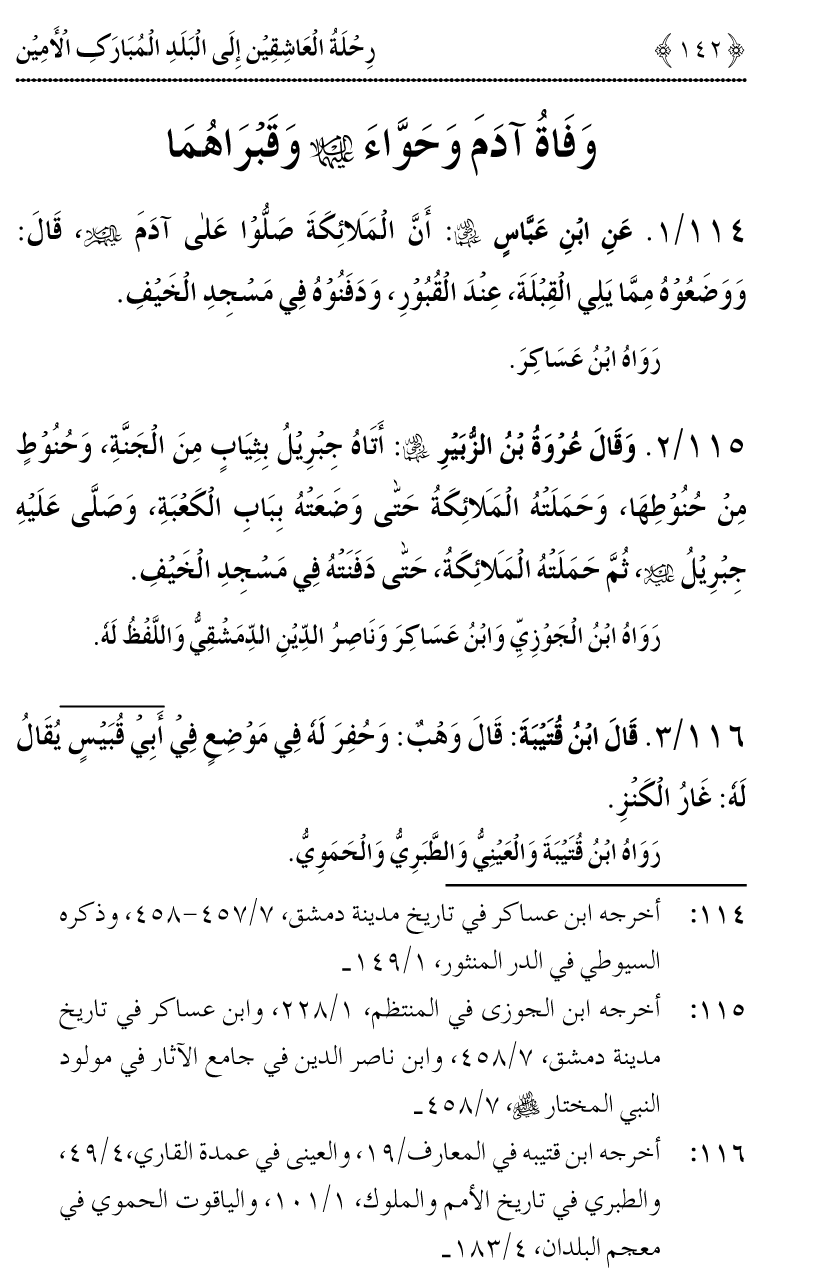 ﴿١٤٢﴾ رِحْلَةُ الْعَاشِقِيْن إِلَى الْبَلَدِ الْمُبَارَكِ الْأَمِيْن
وَفَاةُ آدَمَ وَحَوَّاءَ عليهما السلام وَقَبْرَاهُمَا
١/١١٤. عَنِ ابْنِ عَبَّاسٍ: أَنَّ الْمَلَائِكَةَ صَلُّوْا عَلٰى آدَمَ، قَالَ:
وَوَضَعُوْهُ مِمَّا يَلِي الْقِبْلَةَ، عِنْدَ الْقُبُوْرِ، وَدَفَنُوْهُ فِي مَسْجِدِ الْخَيْفِ.
رَوَاهُ ابْنُ عَسَاكِرَ.
٢/١١٥. وَقَالَ عُرْوَةُ بْنُ الزُّبَيْرِ: أَتَاهُ جِبْرِيْلُ بِثِيَابٍ مِنَ الْجَنَّةِ، وَحُنُوْطٍ
مِنْ حُنُوْطِهَا، وَحَمَلَتْهُ الْمَلَائِكَةُ حَتّٰى وَضَعَتْهُ بِبَابِ الْكَعْبَةِ، وَصَلَّى عَلَيْهِ
جِبْرِيْلُ، ثُمَّ حَمَلَتْهُ الْمَلَائِكَةُ، حَتّٰى دَفَنَتْهُ فِي مَسْجِدِ الْخَيْفِ.
رَوَاهُ ابْنُ الْجَوْزِيِّ وَابْنُ عَسَاكِرَ وَنَاصِرُ الدِّيْنِ الدِّمَشْقِيُّ وَاللَّفْظُ لَهُ.
٣/١١٦. قَالَ ابْنُ قُتَيْبَةَ: قَالَ وَهْبٌ: وَحُفِرَ لَهُ فِي مَوْضِعٍ فِيْ أَبِيْ قُبَيْسٍ يُقَالُ
لَهُ: غَارُ الْكَنْزِ.
رَوَاهُ ابْنُ قُتَيْبَةَ وَالْعَيْنِيُّ وَالطَّبَرِيُّ وَالْحَمَوِيُّ.
١١٤: أخرجه ابن عساكر في تاريخ مدينة دمشق، ٤٥٧/٧-٤٥٨، وذكره
السيوطي في الدر المنثور، ١٤٩/١ـ
١١٥: أخرجه ابن الجوزى في المنتظم، ٢٢٨/١، وابن عساكر في تاريخ
مدينة دمشق، ٤٥٨/٧، وابن ناصر الدين في جامع الآثار في مولود
النبي المختار ﷺ، ٤٥٨/٧ـ
١١٦: أخرجه ابن قتيبه في المعارف/١٩، والعينى في عمدة القاري،٤٩/٤،
والطبري في تاريخ الأمم والملوك، ١٠١/١، والياقوت الحموي في
معجم البلدان، ١٨٣/٤ـ